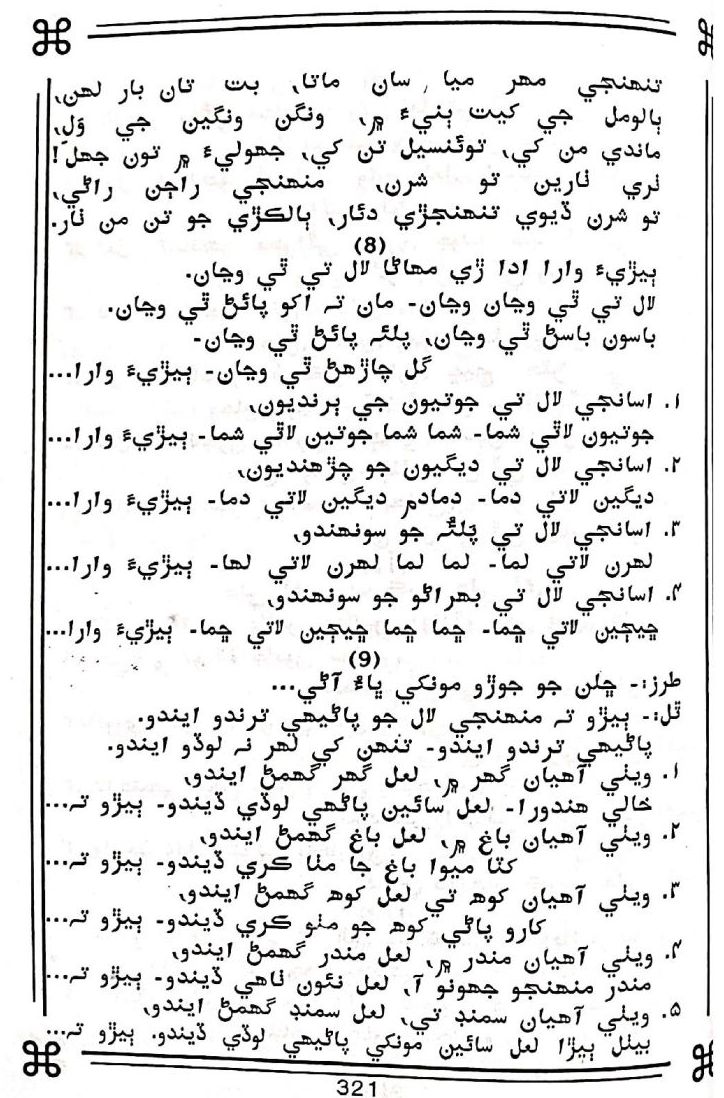 تنهنجي مهر ميا، سان ماتا، بت تان بار لهن،
ٻالومل جي کيت ٻنيءَ ۾، ونگن ونگين جي وَلِ،
ماندي من کي، توئنسيل تن کي، جهوليءَ ۾ تون جهل!
نري نارين تو شرن، منهنجي راڄن راڻي،
تو شرن ڏيوي تنهنجڙي دئار، ٻالڪڙي جو تن من نار.
(8)
ٻيڙيءَ وارا ادا ڙي مهاڻا لال تي ٿي وڃان.
لال تي ٿي وڃان وڃان- مان تہ اکو پائڻ ٿي وڃان.
باسون باسڻ ٿي وڃان، پلئہ پائڻ ٿي وڃان-
گل چاڙهڻ ٿي وڃان- ٻيڙيءَ وارا...
۱. اسانجي لال تي جوتيون جي ٻرنديون،
جوتيون لاٿي شما- شما شما جوتين لاٿي شما- ٻيڙيءَ وارا...
۲. اسانجي لال تي ديگيون جو چڙهنديون،
ديگين لاتي دما- دمادم ديگين لاتي دما- ٻيڙيءَ وارا...
۳. اسانجي لال تي پَلئُہ جو سونهندو،
لهرن لاتي لما- لما لما لهرن لاتي لها- ٻيڙيءَ وارا...
۴. اسانجي لال تي بهراڻو جو سونهندو،
ڇيڄين لاتي ڇما- ڇما ڇما ڇيڄين لاتي ڇما- ٻيڙيءَ وارا...
(9)
طرز:- ڇلن جو جوڙو مونکي ڀاءُ آڻي...
ٿل:- ٻيڙو تہ منهنجي لال جو پاڻيهي ترندو ايندو.
پاڻيهي ترندو ايندو- تنهن کي لهر نہ لوڏو ايندو.
۱. ويٺي آهيان گهر ۾، لعل گهر گهمڻ ايندو،
خالي هندورا- لعل سائين پاڻهي لوڏي ڏيندو- ٻيڙو تہ...
۲. ويٺي آهيان باغ ۾، لعل باغ گهمڻ ايندو،
کٽا ميوا باغ جا مٺا ڪري ڏيندو- ٻيڙو تہ...
۳. ويٺي آهيان کوهه تي لعل کوهه گهمڻ ايندو،
کارو پاڻي کوهه جو مٺو ڪري ڏيندو- ٻيڙو تہ...
۴. ويٺي آهيان مندر ۾، لعل مندر گهمڻ ايندو،
مندر منهنجو جهونو آ، لعل نئون ٺاهي ڏيندو- ٻيڙو تہ...
۵. ويٺي آهيان سمنڊ تي، لعل سمنڊ گهمڻ ايندو،
بيٺل ٻيڙا لعل سائين مونکي پاڻيهي لوڏي ڏيندو. ٻيڙو تہ...
321